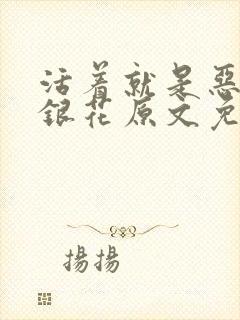 活着就是惡
銀花原文免
揚揚